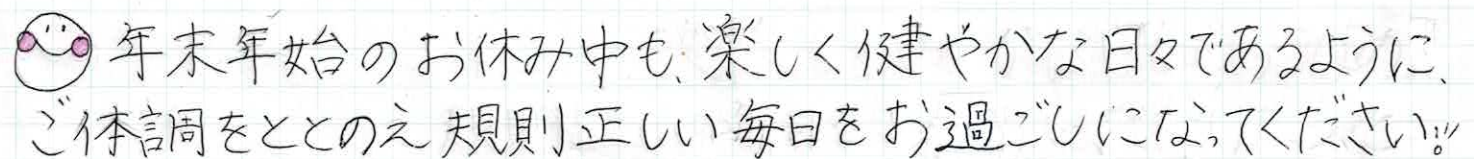 年末年始のお休み中も、楽しく健やかな日々であるように、
ご体調をととのえ規則正しい毎日をお過ごしになってください!!